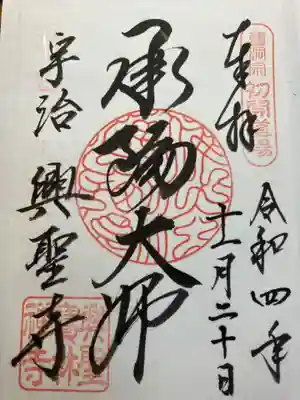 奉拝
曹洞宗
初開道場
令和四年
十一月二十日
承陽大師
宇治 興聖寺